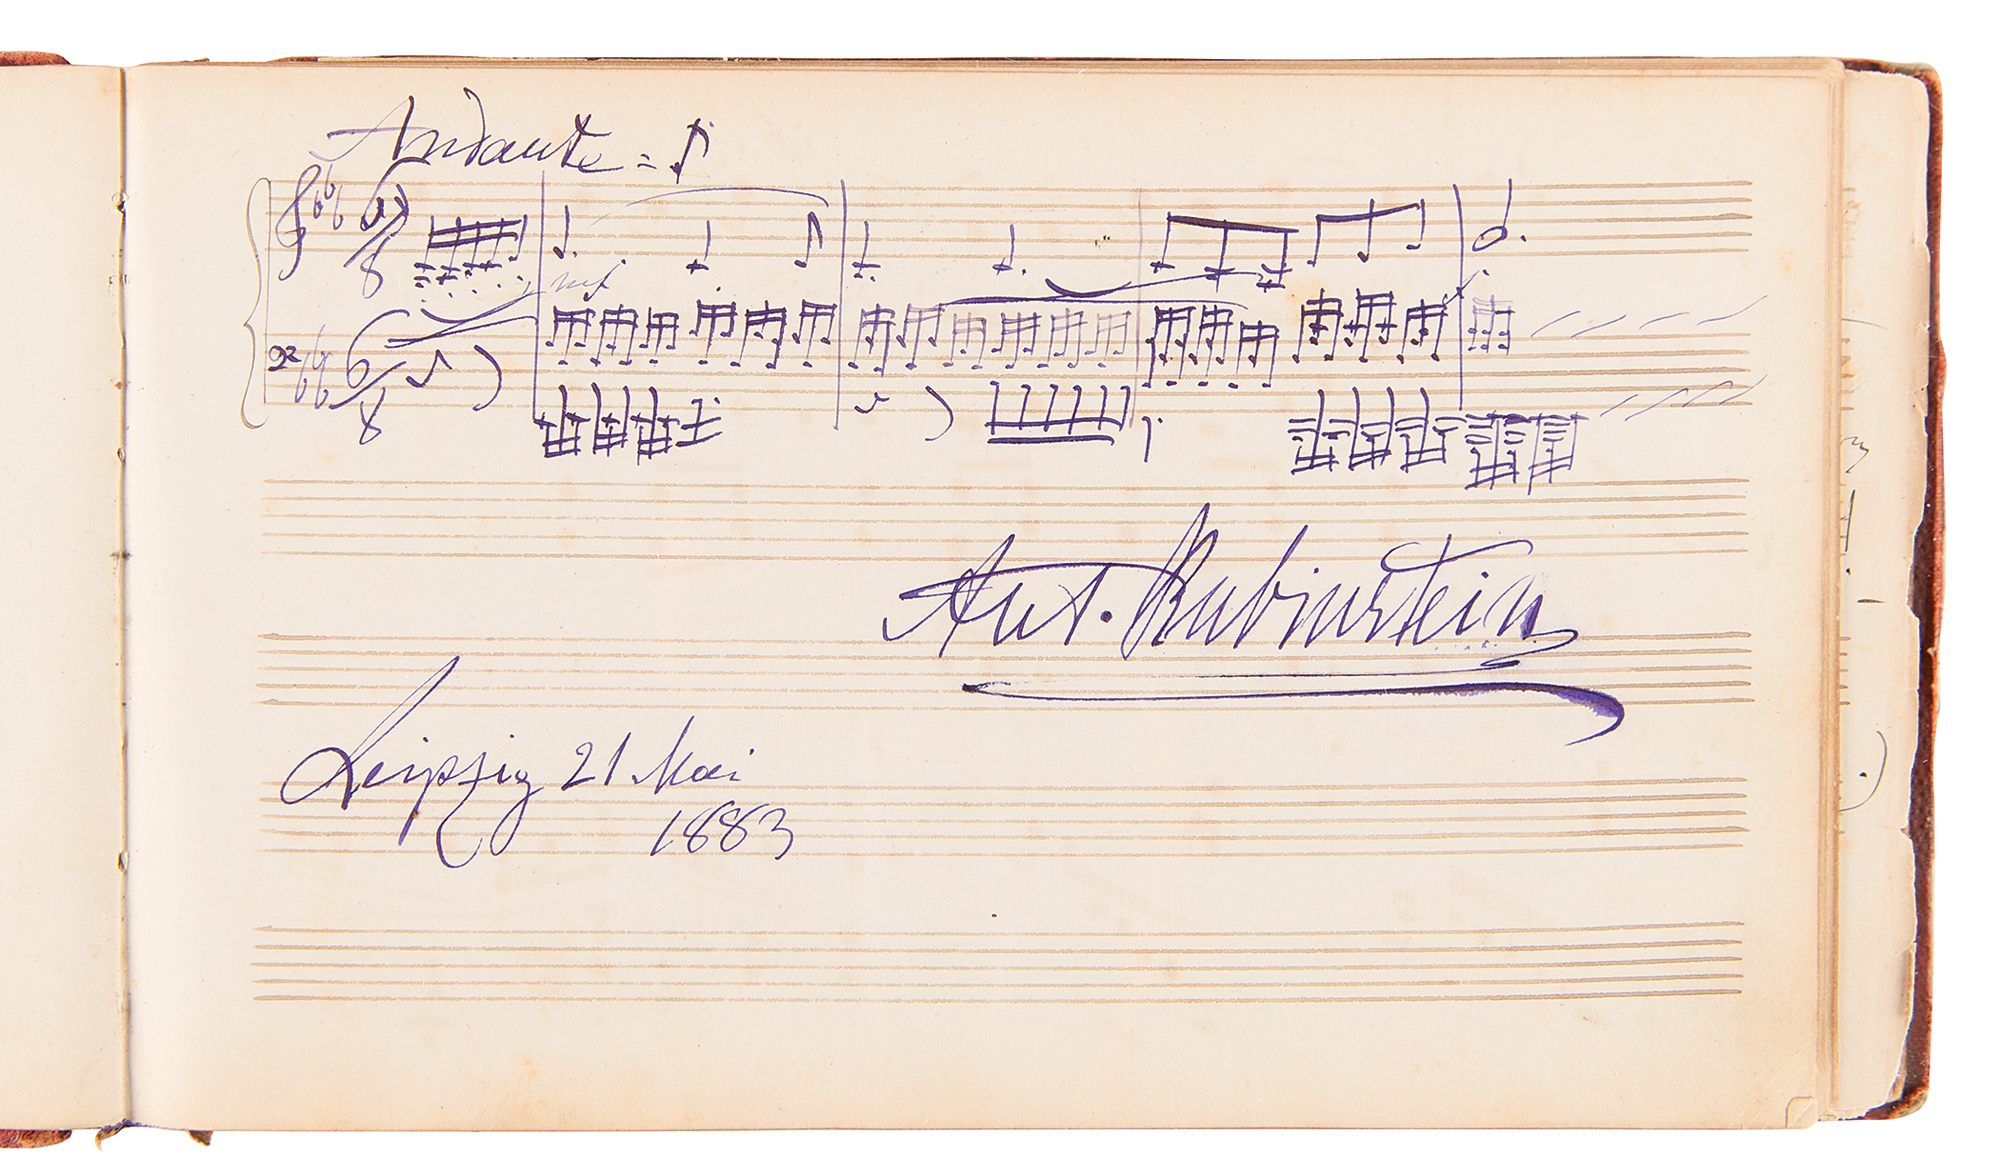 Andante = ♪
6/8
mf
6/8
Ant. Rubinstein
Leipzig 21 Mai
1883